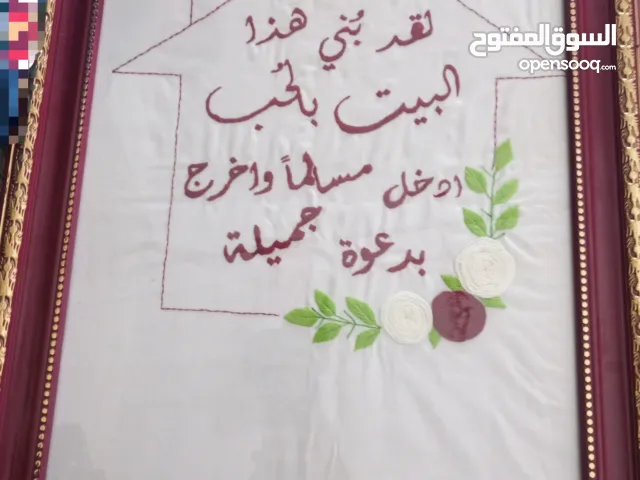 السوق المفتوح
opensooq.com
لقد بُني هذا
البيت بالحُب
ادخل مسالماً واخرج
بدعوة جميلة